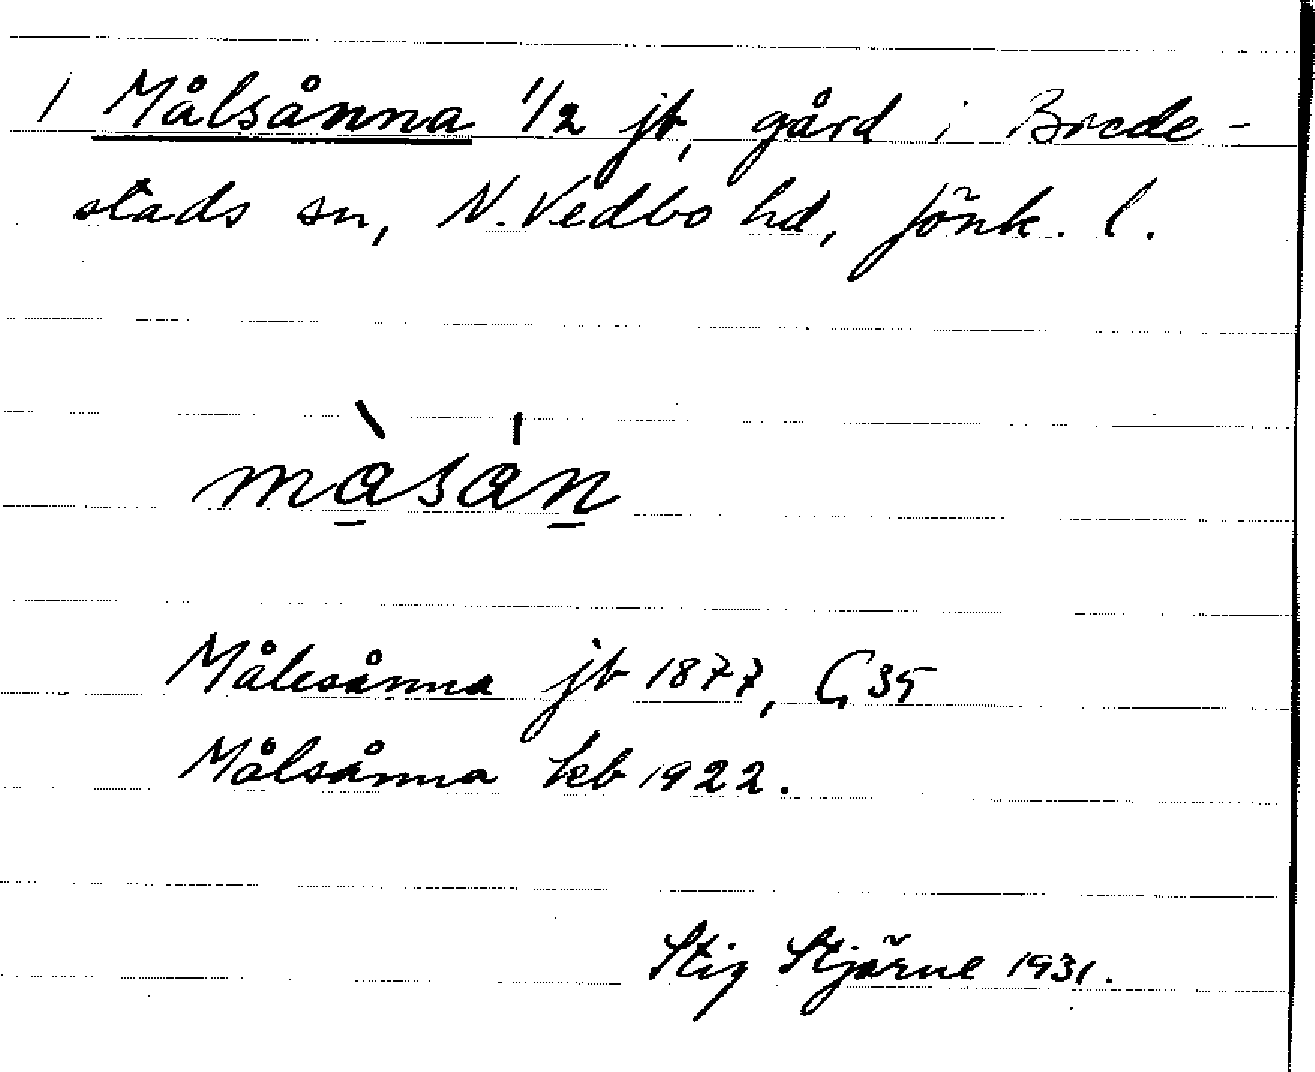 / Målsånna 1/2 jb, gård i Brede-
stads sn, N. Vedbo hd, Jönk. l.
Målesånna jb 1877, G 35
Målsånna kb 1922.
Stig Stjärne 1931.